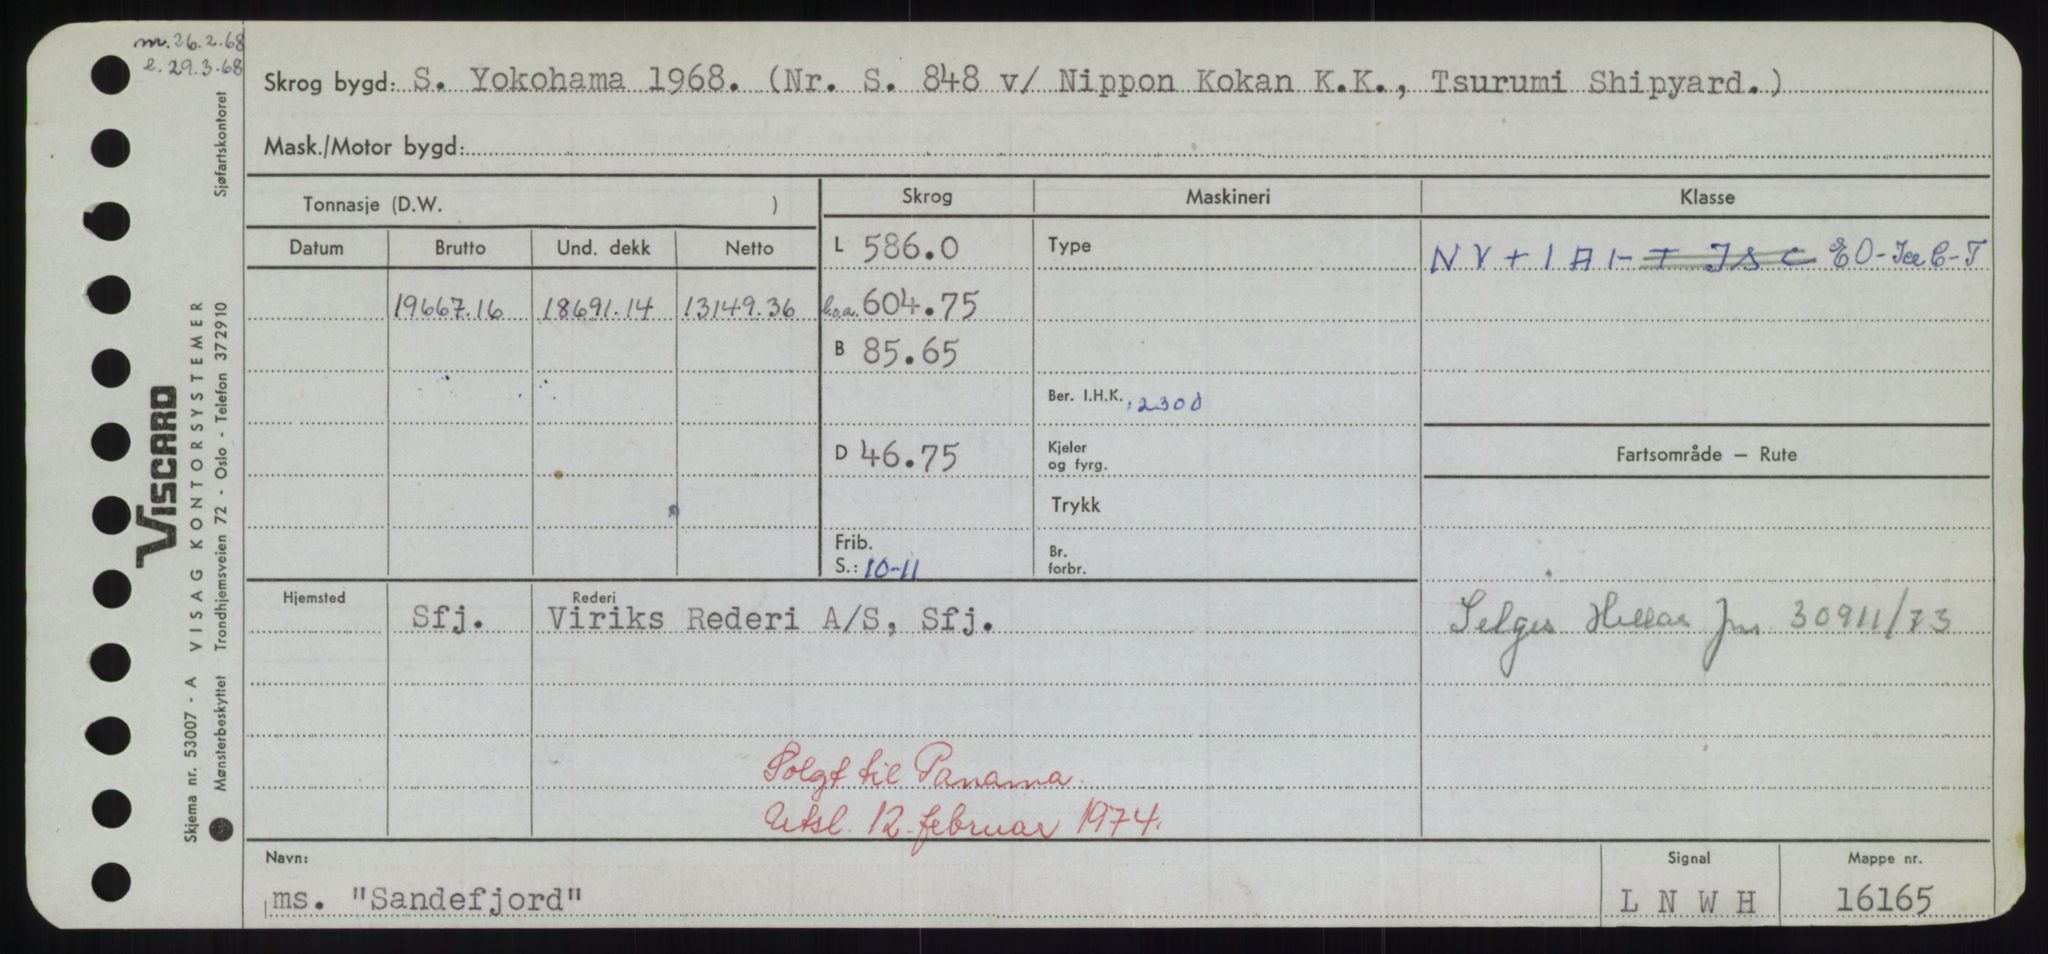 m. 26.2.68
e. 29.3.68
Skrog bygd: S. Yokohama 1968. (Nr. S. 848 v/ Nippon Kokan K.K., Tsurumi Shipyard.)
Mask./Motor bygd:
Sjøfartskontoret
Tonnasje (D.W. )
Skrog
Maskineri
Klasse
Datum
Brutto
Und. dekk
Netto
L 586.0
Type
NV + 1 A 1 - T ISC EO-Ice C-T
19667.16
18691.14
13149.36
l.o.a. 604.75
B 85.65
Ber. I.H.K. 12300
D 46.75
Kjeler
og fyrg.
Fartsområde – Rute
Trykk
Frib.
S.: 10-11
Br.
forbr.
Hjemsted
Sfj.
Rederi
Viriks Rederi A/S, Sfj.
Selges Hellas Jnr. 30911/73
Solgt til Panama.
Utsl. 12. februar 1974.
Navn:
ms. "Sandefjord"
Signal
L N W H
Mappe nr.
16165
VISCARD
VISAG KONTORSYSTEMER
Trondhjemsveien 72 - Oslo - Telefon 372910
Skjema nr. 53007 - A
Mønsterbeskyttet